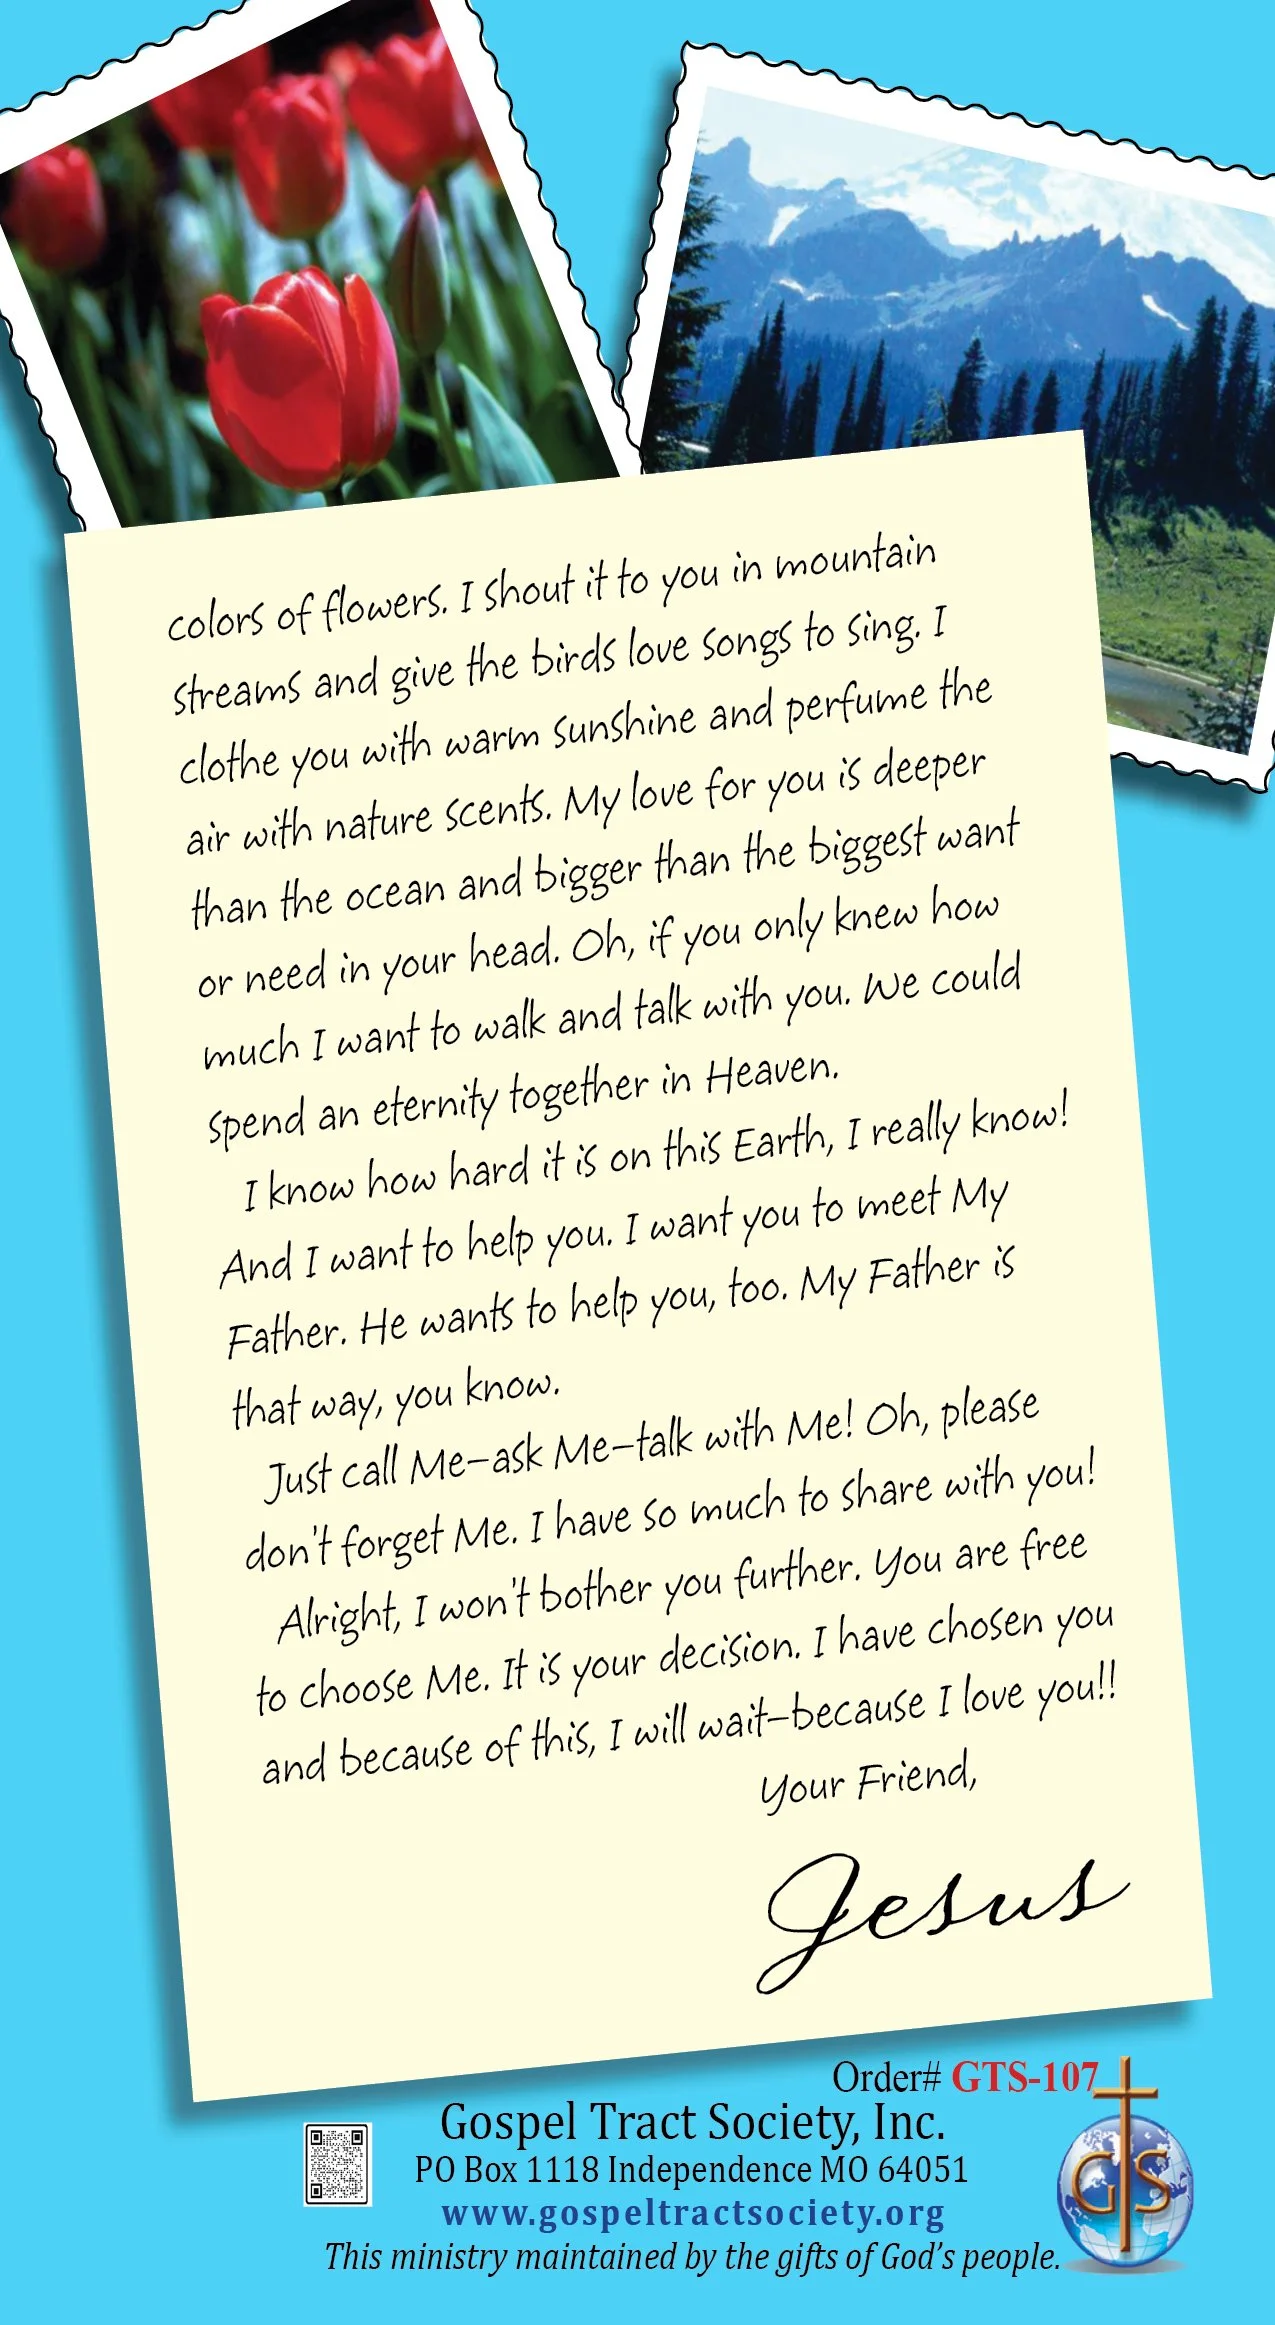 colors of flowers. I shout it to you in mountain
streams and give the birds love songs to sing. I
clothe you with warm sunshine and perfume the
air with nature scents. My love for you is deeper
than the ocean and bigger than the biggest want
or need in your head. Oh, if you only knew how
much I want to walk and talk with you. We could
spend an eternity together in Heaven.
I know how hard it is on this Earth, I really know!
And I want to help you. I want you to meet My
Father. He wants to help you, too. My Father is
that way, you know.
Just call Me–ask Me–talk with Me! Oh, please
don't forget Me. I have so much to share with you!
Alright, I won't bother you further. You are free
to choose Me. It is your decision. I have chosen you
and because of this, I will wait–because I love you!!
Your Friend,
Jesus
Order# GTS-107
Gospel Tract Society, Inc.
PO Box 1118 Independence MO 64051
www.gospeltractsociety.org
This ministry maintained by the gifts of God's people.
GTS